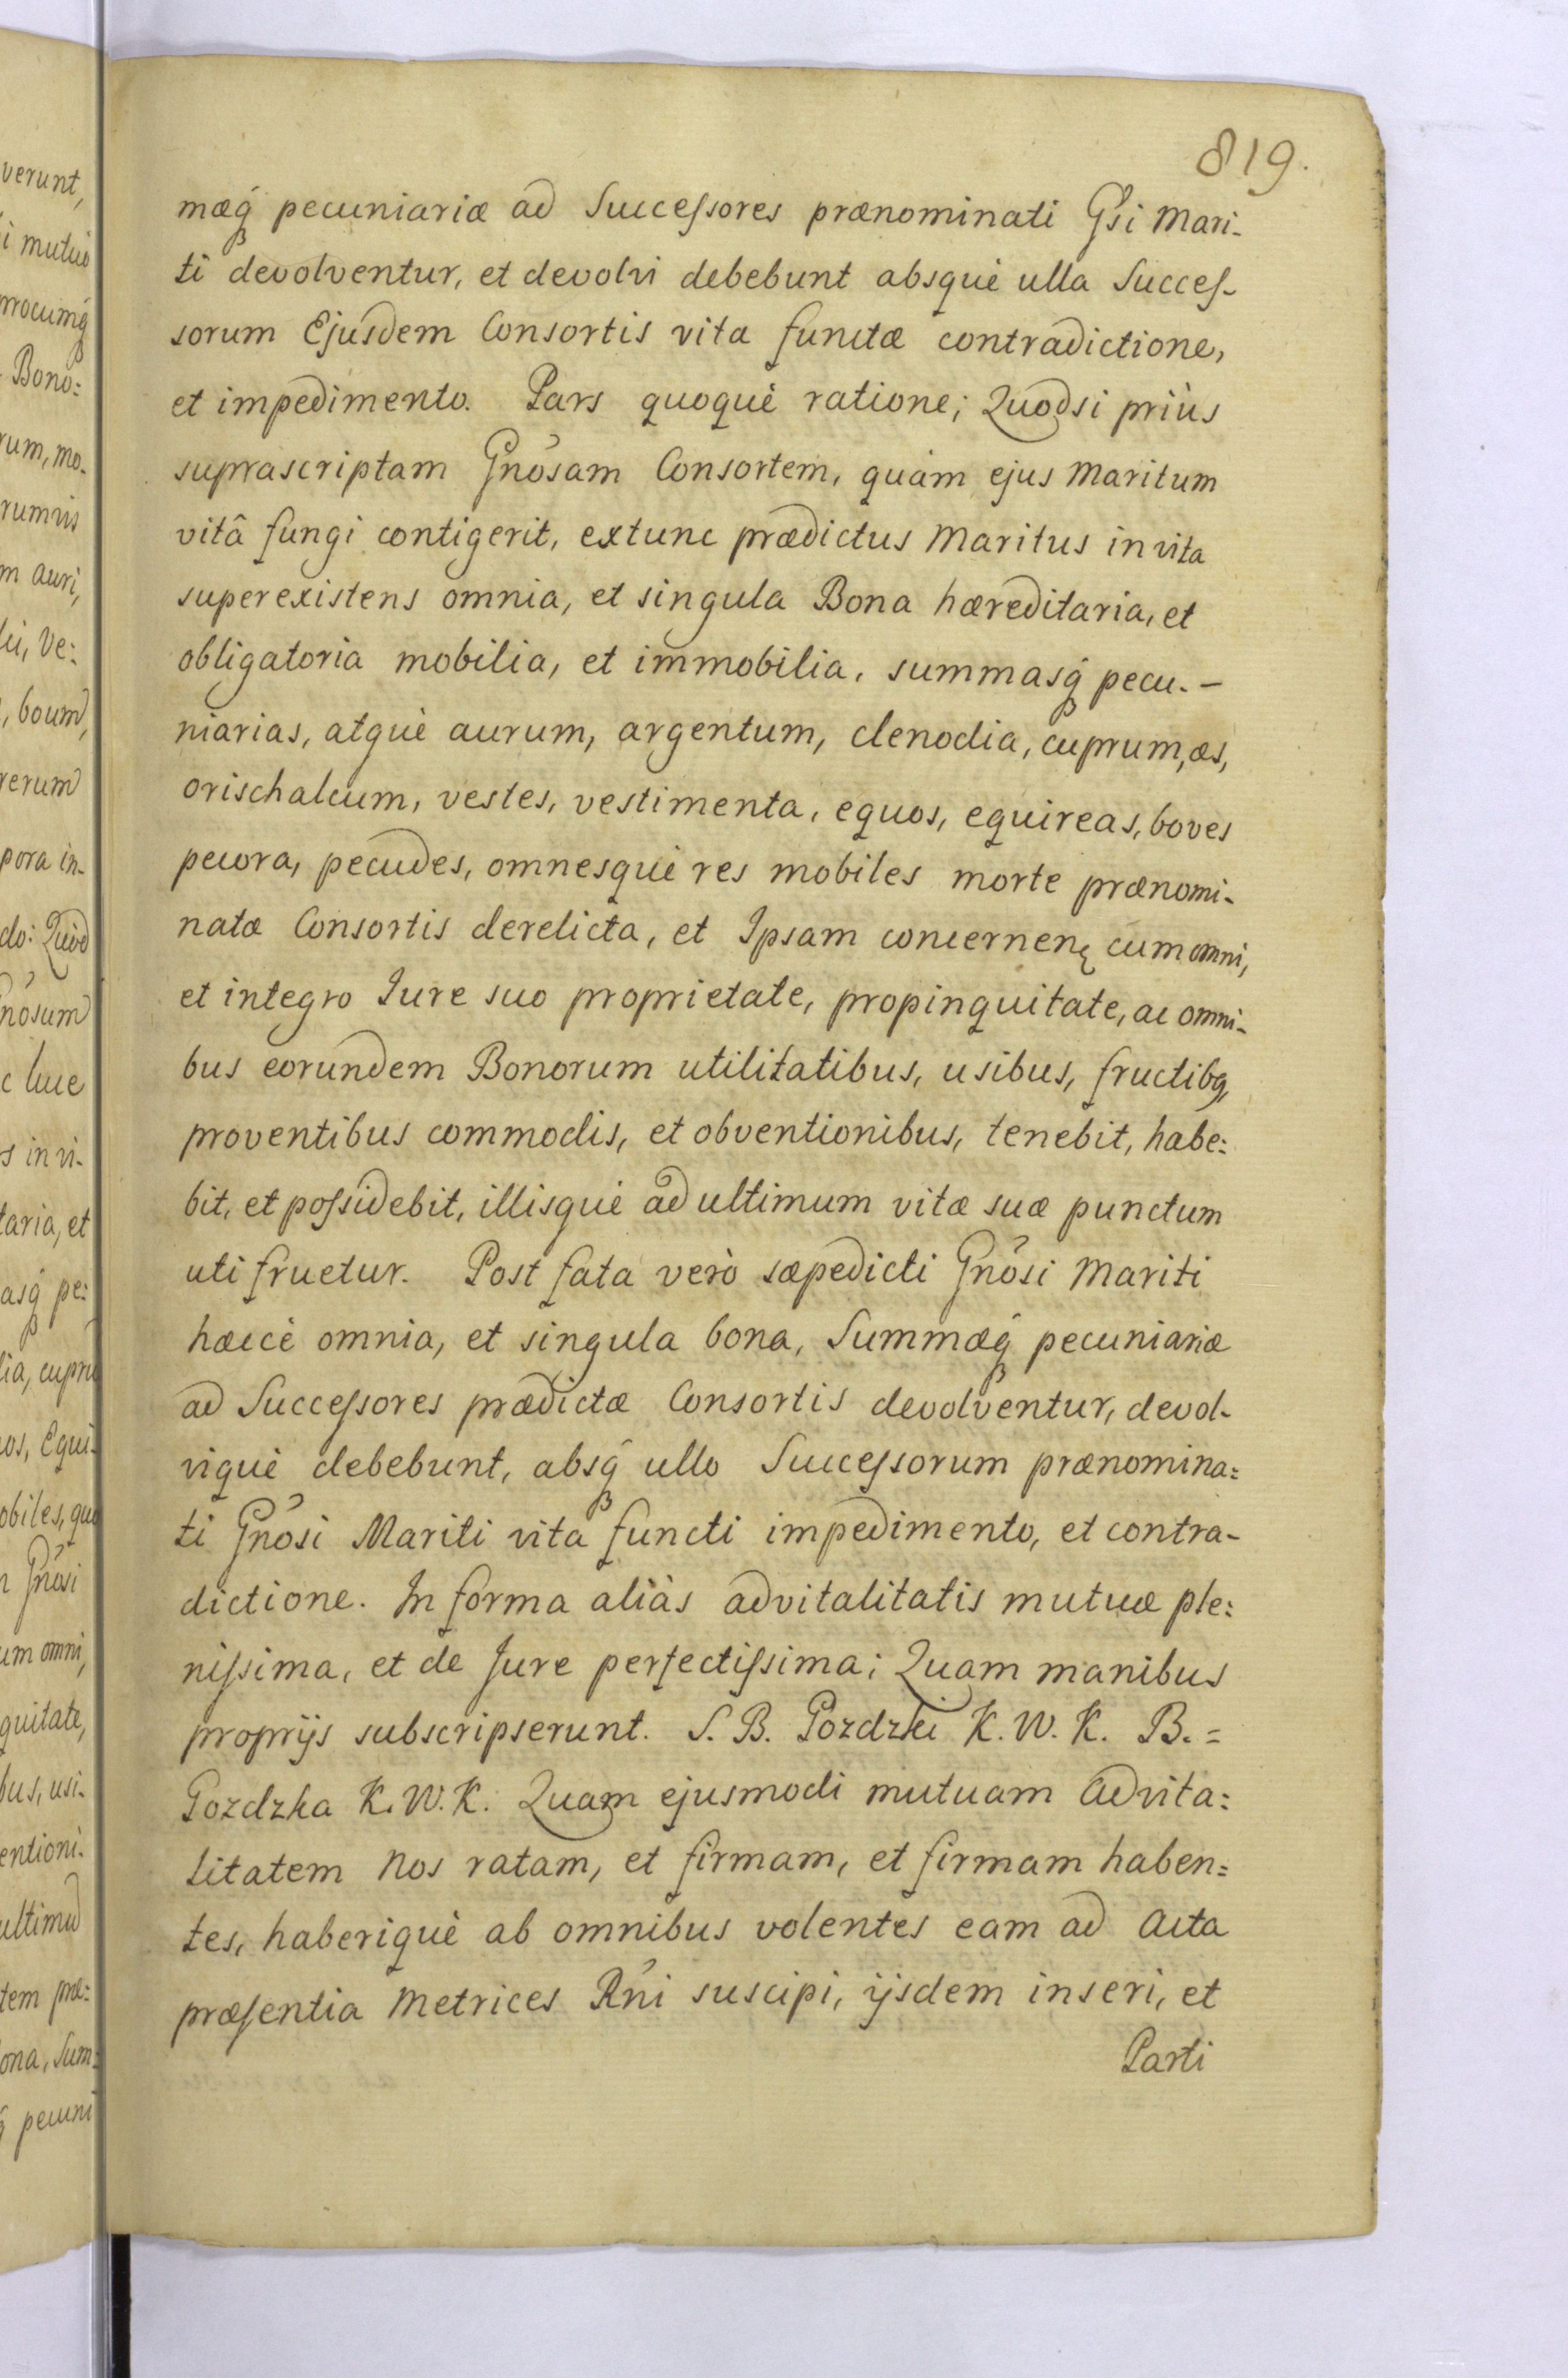 819.
mæq́ pecuniariæ ad Successores prænominati Gsi Mari-
ti devolventur, et devolvi debebunt absquè ulla Succes-
sorum Ejusdem Consortis vita functæ contradictione,
et impedimento. Pars quoquè ratione; Quodsi priùs
suprascriptam Gnosam Consortem, quàm ejus Maritum
vitâ fungi contigerit, extunc prædictus Maritus in vita
superexistens omnia, et singula Bona hæreditaria, et
obligatoria mobilia, et immobilia, summasq́ pecu.-
niarias, atquè aurum, argentum, clenodia, cuprum, æs,
orischalcum, vestes, vestimenta, equos, equireas, boves
pecora, pecudes, omnesquè res mobiles morte prænomi-
natæ Consortis derelicta, et Ipsam concernenę cum omni,
et integro Jure suo proprietate, propinquitate, ac omni-
bus eorundem Bonorum utilitatibus, usibus, fructibq,
proventibus commodis, et obventionibus, tenebit, habe:
bit, et possidebit, illisquè ad ultimum vitæ suæ punctum
uti fruetur. Post fata verò sæpedicti Gnosi Mariti
hæccè omnia, et singula bona, Summæq́ pecuniariæ
ad Successores prædictæ Consortis devolventur, devol-
viquè debebunt, absq́ ullo Successorum prænomina=
ti Gnosi Mariti vita functi impedimento, et contra-
dictione. In forma aliàs advitalitatis mutuæ ple:
nissima, et de Jure perfectissima; Quam manibus
proprijs subscripserunt. S. B. Gozdzki K. W. K. B. =
Gozdzka K. W. K. Quam ejusmodi mutuam Advita:
litatem Nos ratam, et firmam, et firmam haben=
tes, haberiquè ab omnibus volentes eam ad Acta
præsentia Metrices Rni suscipi, ijsdem inseri, et
Parti